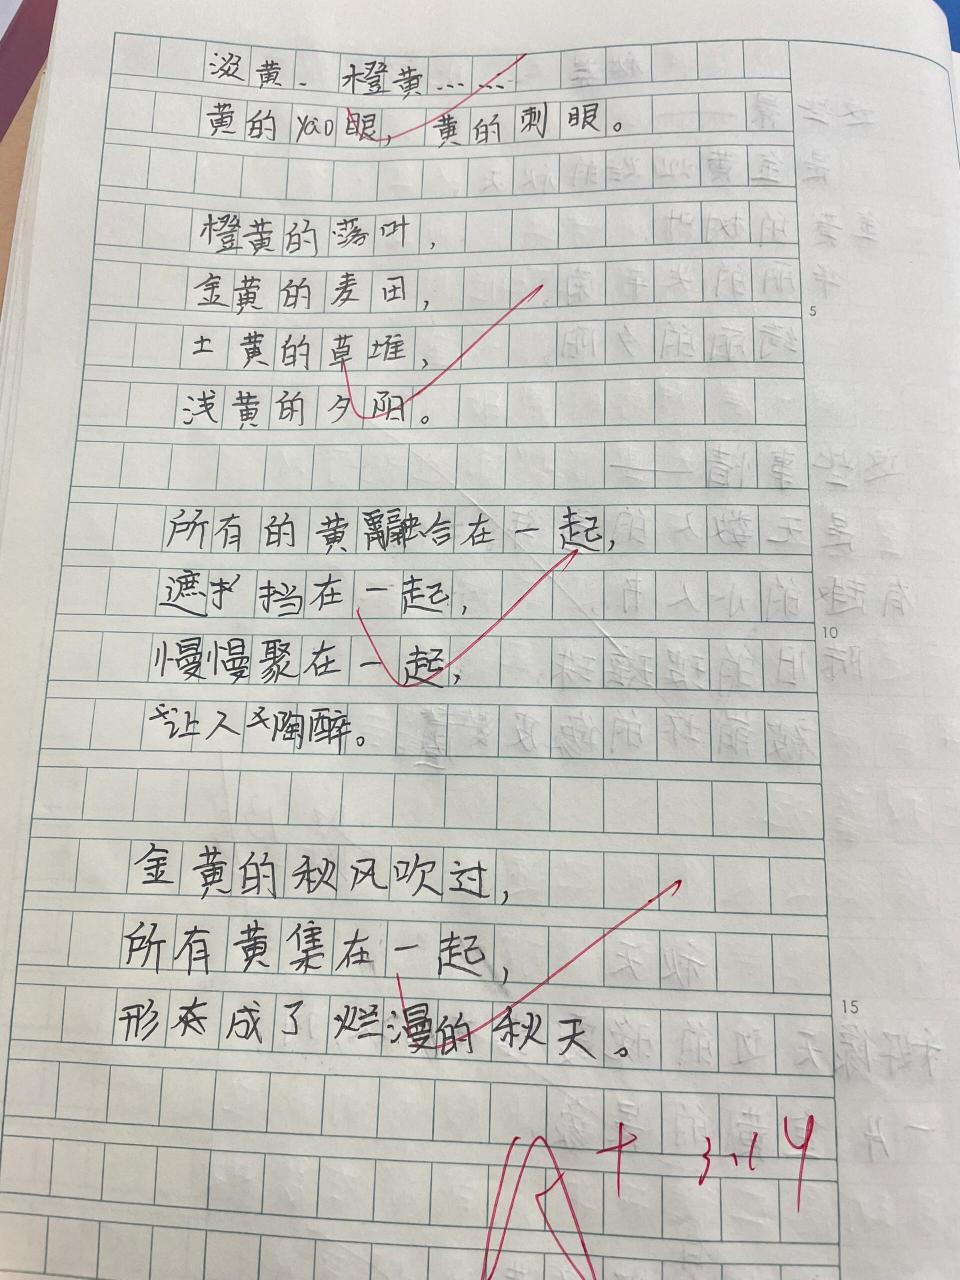 黄、橙黄……
黄的yào眼，黄的刺眼。
橙黄的落叶，
金黄的麦田，
土黄的草堆，
浅黄的夕阳。
5
所有的黄融合在一起，
遮挡在一起，
10
慢慢聚在一起，
让人陶醉。
金黄的秋风吹过，
所有黄集在一起，
15
形成了烂漫的秋天。
A+ 3.14